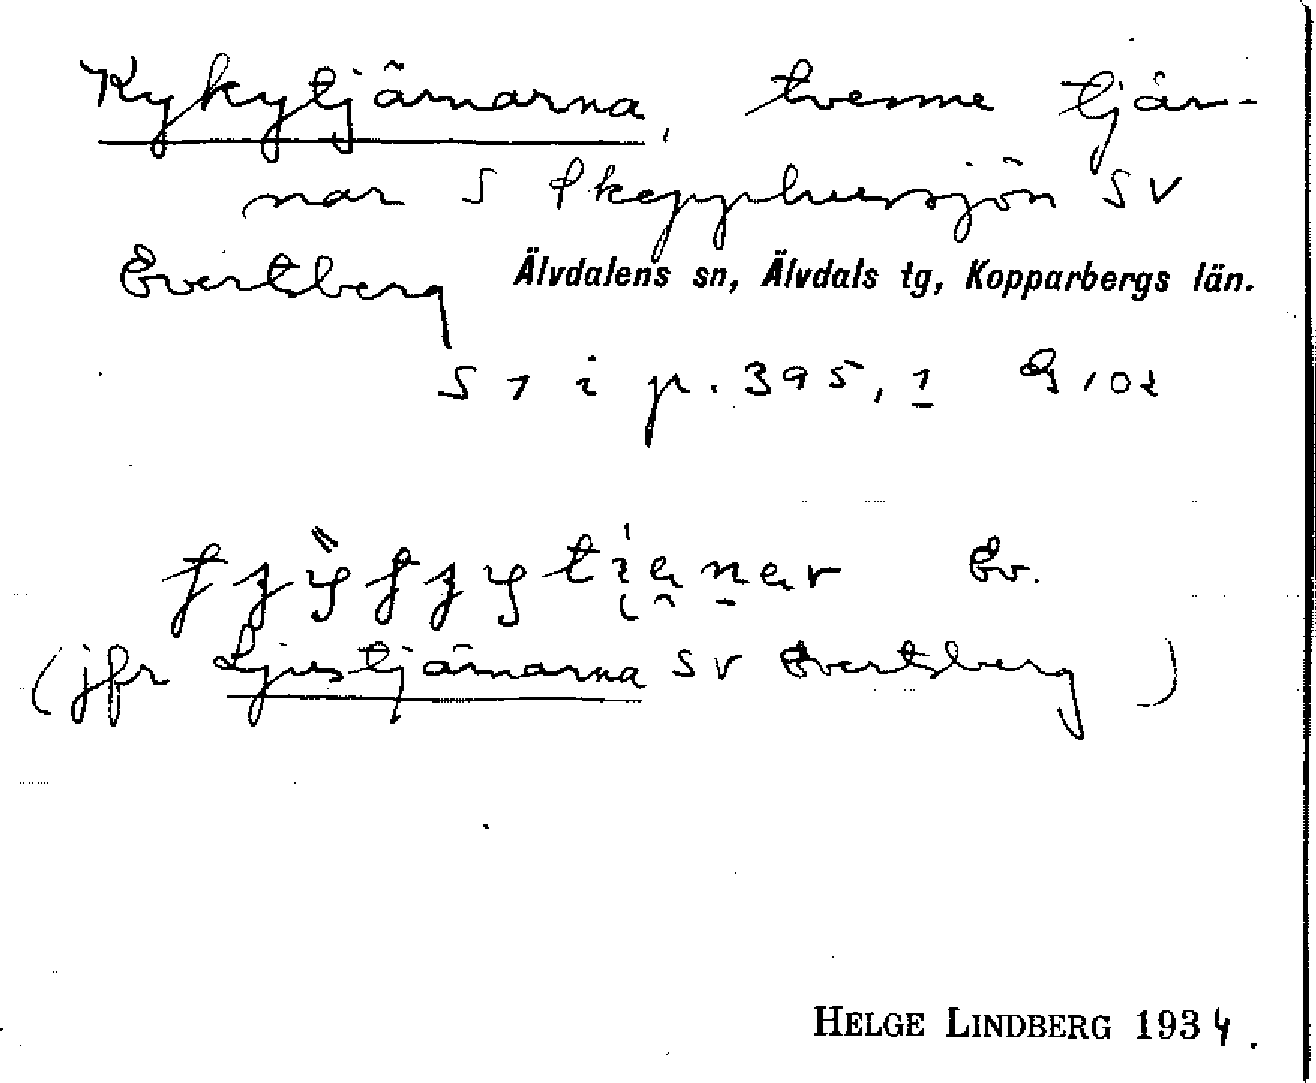 Kykytjärnarna, tvenne tjär-
nar S Skepphussjön SV
Evertsberg Älvdalens sn, Älvdals tg, Kopparbergs län.
S 1 i p. 395, 1
Ev.
(jfr Ljustjärnarna SV Evertsberg)
HELGE LINDBERG 1934.